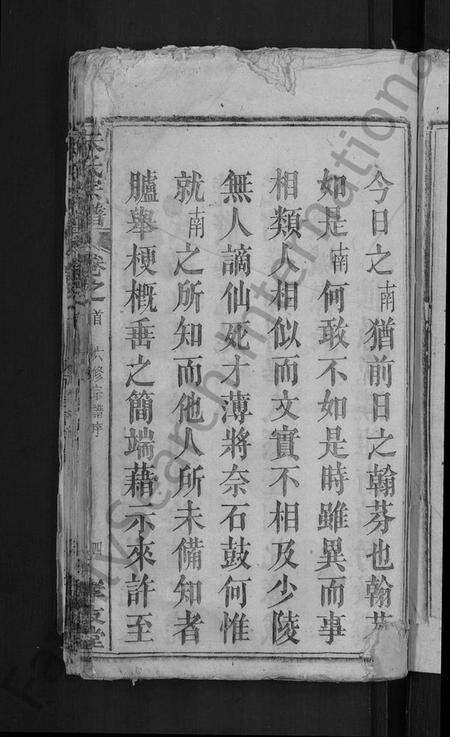 今日之南猶前日之翰芬也翰芬
如是南何敢不如是時雖異而事
相類人相似而文實不相及少陵
無人謫仙死才薄將奈石鼓何惟
就南之所知而他人所未備知者
臚舉梗概垂之簡端藉示來許至
氏宗譜 卷之首 六修宗譜序 四 堂
FamilySearch International